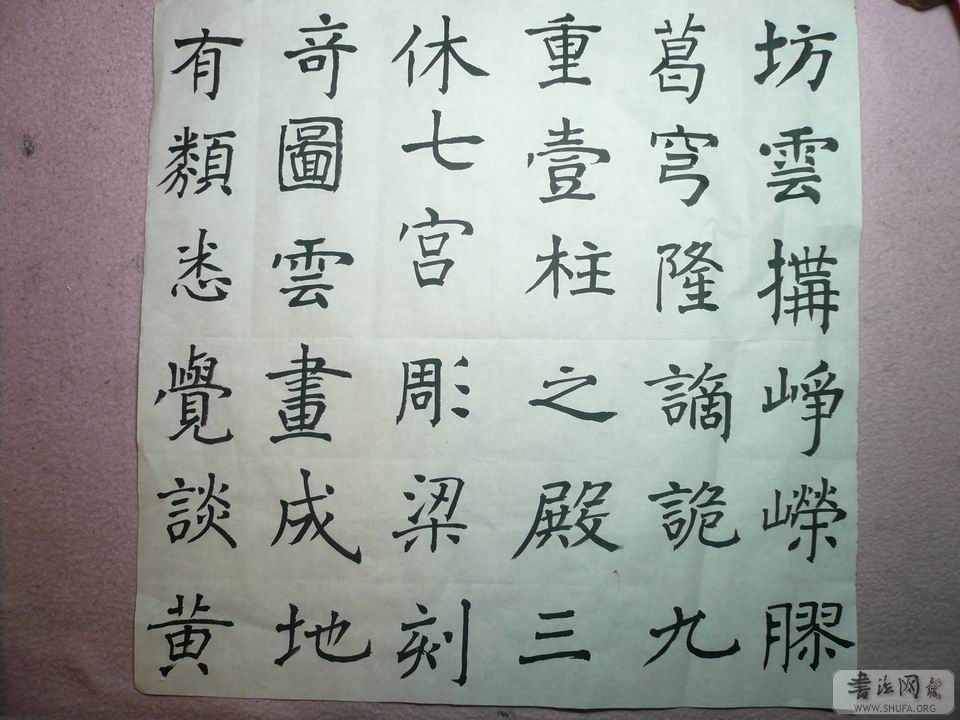 坊雲搆崢嶸膠
葛穹隆謫詭九
重壹柱之殿三
休七宫彫梁刻
竒圖雲畫成地
有類悉覺談黄
書法网
WWW.SHUFA.ORG